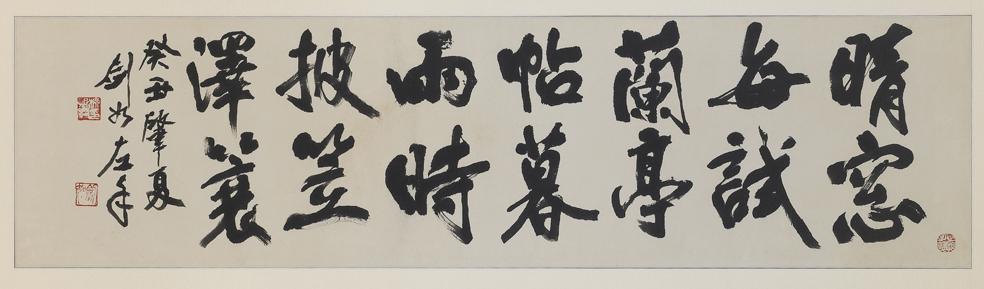 晴窓
每試
蘭亭
帖暮
雨時
披笠
澤蓑
癸丑肇夏
劍如左手